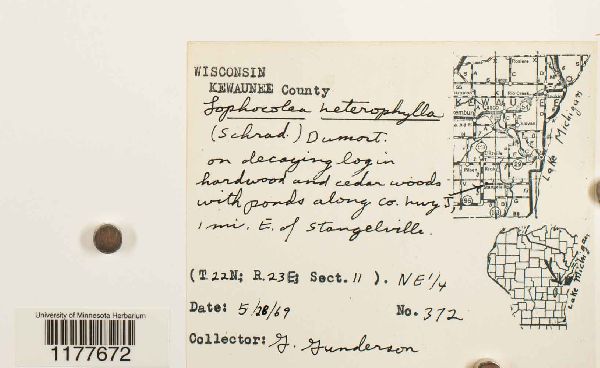 WISCONSIN
KEWAUNEE County
Lophocolea heterophylla
(Schrad.) Dumort.
on decaying log in
hardwood and cedar woods
with ponds along co. hwy J,
1 mi. E. of Stangelville.
(T.22N; R.23E; Sect. 11 ). NE 1/4
Date: 5/28/69 No. 372
Collector: G. Gunderson
Lake Michigan
Lake Michigan
University of Minnesota Herbarium
1177672